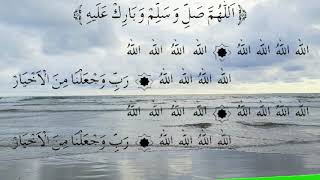 ﴿ اَللّٰهُمَّ صَلِّ وَسَلِّمْ وَبَارِكْ عَلَيْهِ ﴾
اَللّٰهُ اَللّٰهُ اَللّٰهُ اَللّٰهُ ۞ اَللّٰهُ اَللّٰهُ اَللّٰهُ
اَللّٰهُ اَللّٰهُ اَللّٰهُ اَللّٰهُ ۞ رَبِّ وَجْعَلْنَا مِنَ الْاَخْيَارْ
اَللّٰهُ اَللّٰهُ اَللّٰهُ اَللّٰهُ ۞ اَللّٰهُ اَللّٰهُ اَللّٰهُ
اَللّٰهُ اَللّٰهُ اَللّٰهُ اَللّٰهُ ۞ رَبِّ وَجْعَلْنَا مِنَ الْاَخْيَارْ